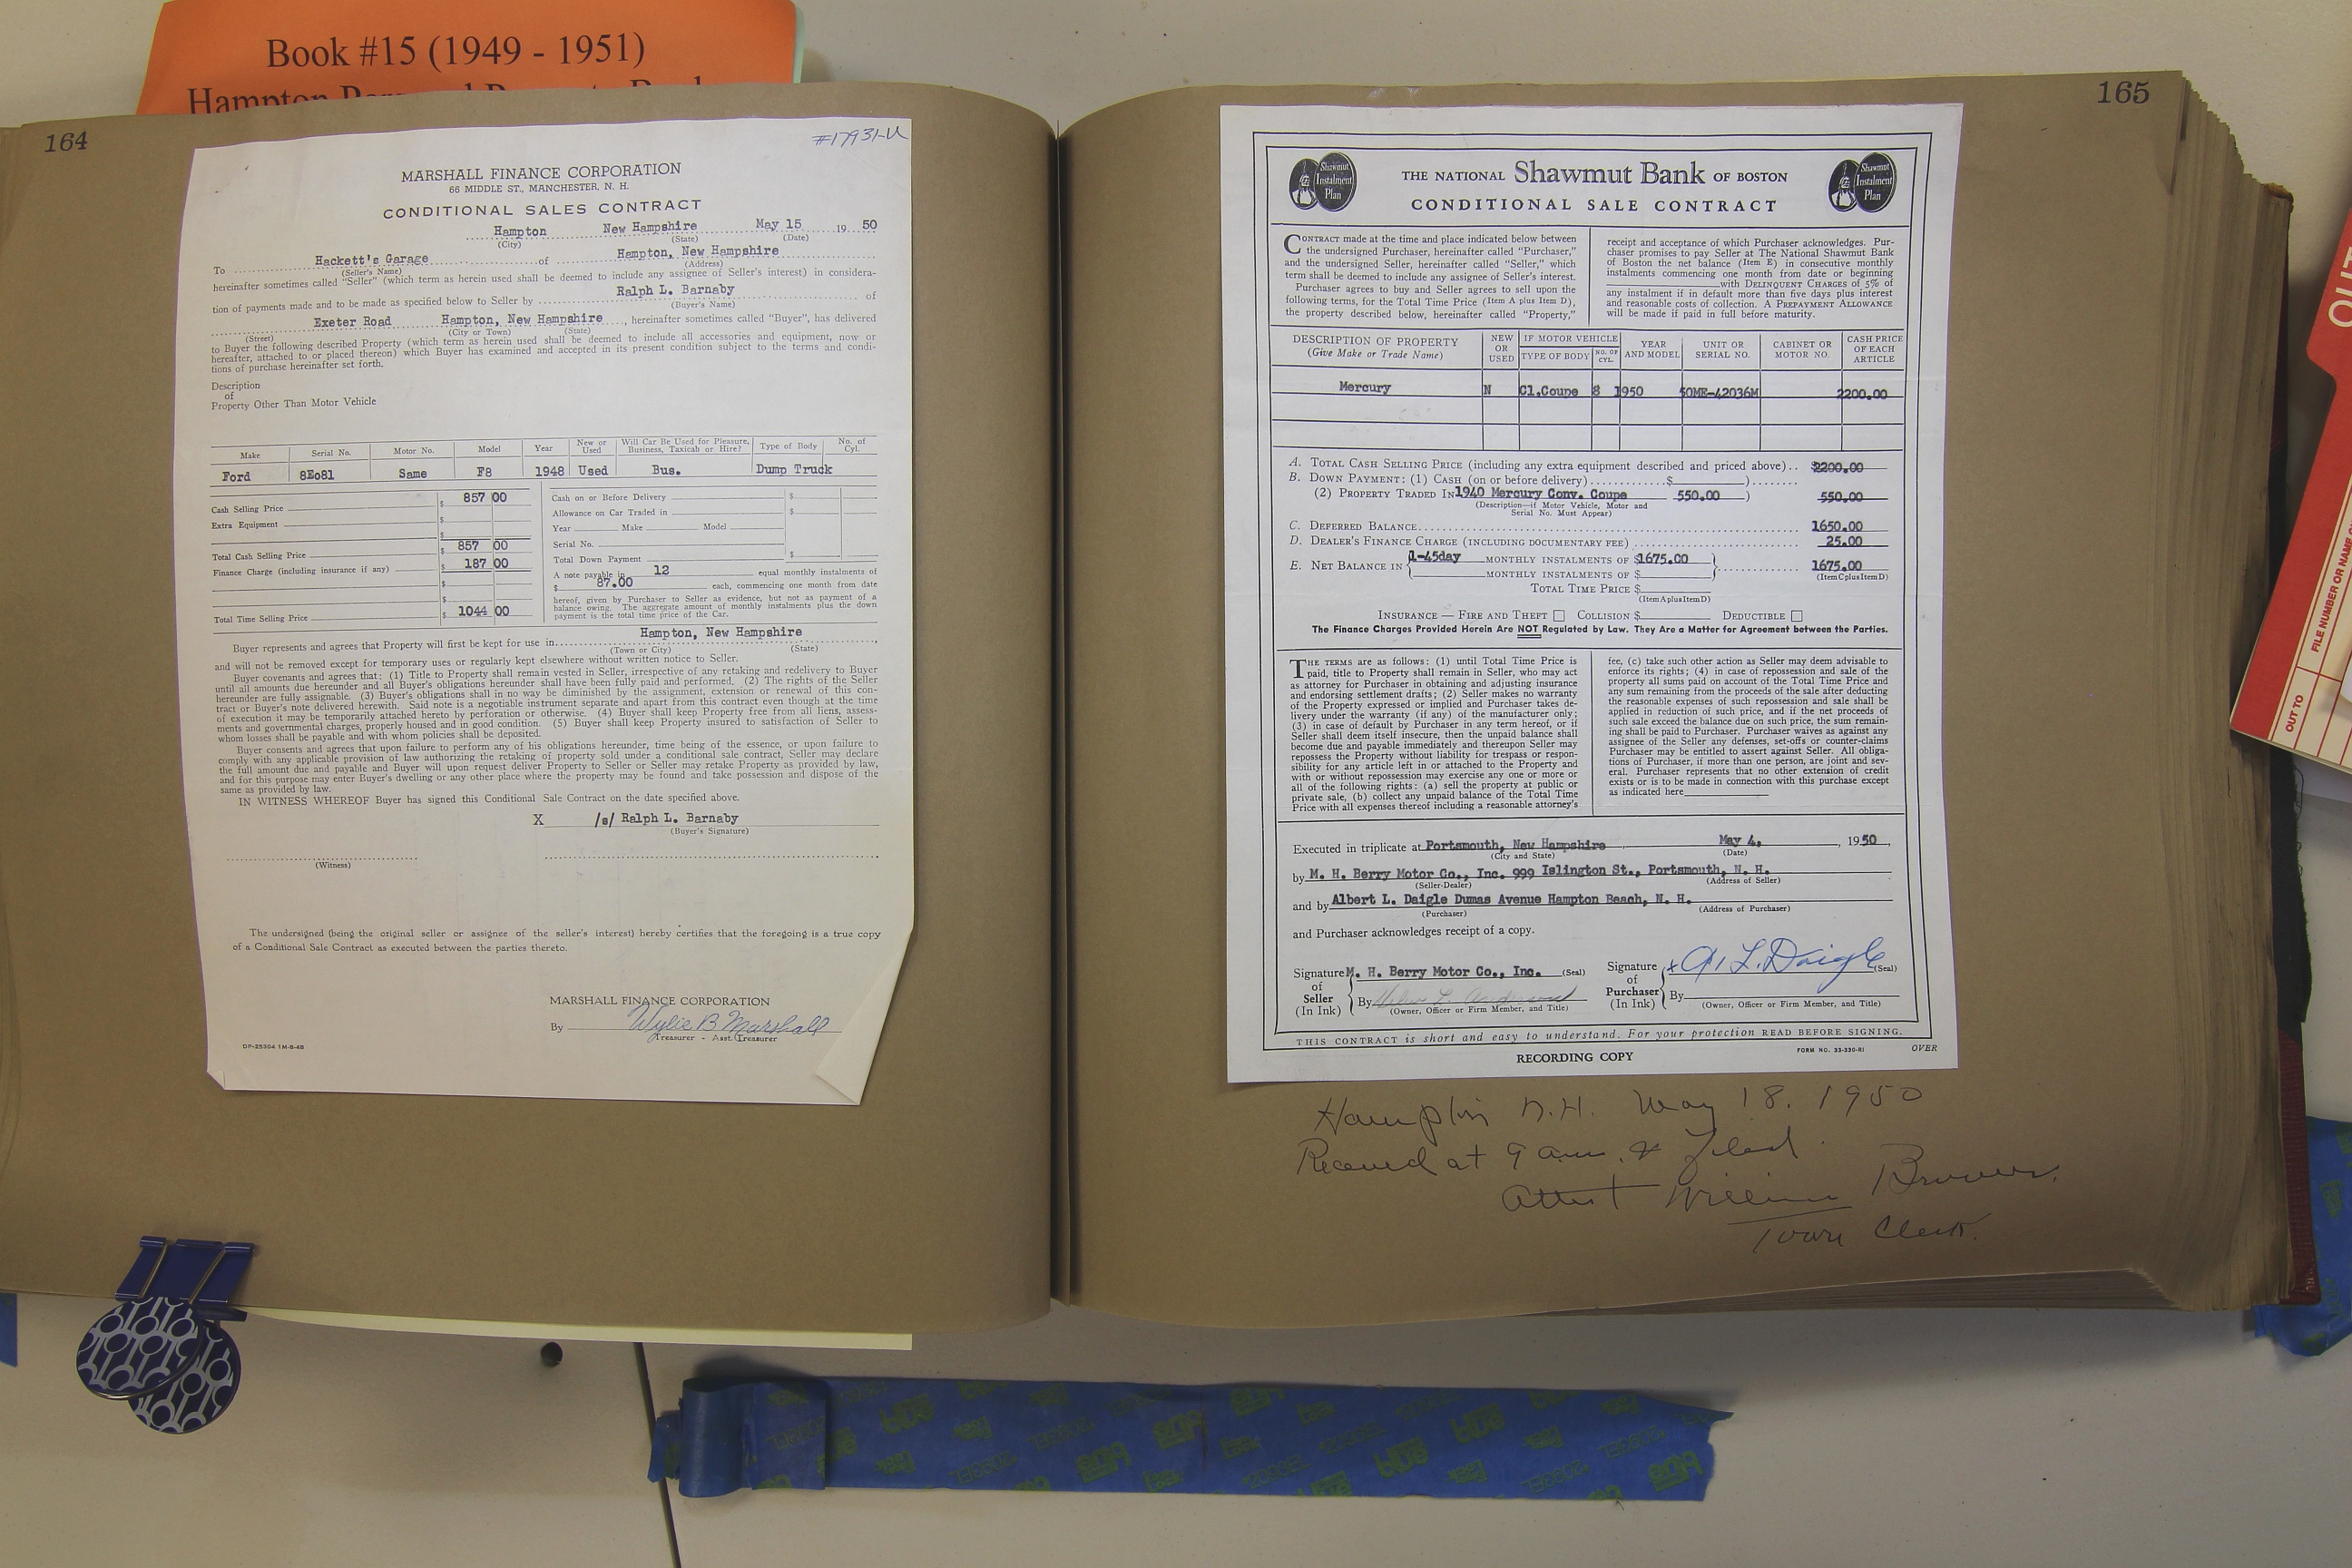 Book #15 (1949 - 1951)
164
#17931-U
MARSHALL FINANCE CORPORATION
66 MIDDLE ST., MANCHESTER, N. H.
CONDITIONAL SALES CONTRACT
Hampton New Hampshire May 15 19 50
(City) (State) (Date)
To Hackett's Garage of Hampton, New Hampshire
(Seller's Name) (Address)
hereinafter sometimes called "Seller" (which term as herein used shall be deemed to include any assignee of Seller's interest) in considera-
tion of payments made and to be made as specified below to Seller by Ralph L. Barnaby of
(Buyer's Name)
Exeter Road Hampton, New Hampshire, hereinafter sometimes called "Buyer", has delivered
(Street) (City or Town) (State)
to Buyer the following described Property (which term as herein used shall be deemed to include all accessories and equipment, now or
hereafter, attached to or placed thereon) which Buyer has examined and accepted in its present condition subject to the terms and condi-
tions of purchase hereinafter set forth.
Description
of
Property Other Than Motor Vehicle
Make Serial No. Motor No. Model Year New or Used Will Car Be Used for Pleasure, Business, Taxicab or Hire? Type of Body No. of Cyl.
Ford 8Eo81 Same F8 1948 Used Bus. Dump Truck
Cash Selling Price $ 857 00
Extra Equipment $
Total Cash Selling Price $ 857 00
Finance Charge (including insurance if any) $ 187 00
$
Total Time Selling Price $ 1044 00
Cash on or Before Delivery $
Allowance on Car Traded in $
Year Make Model
Serial No.
Total Down Payment $
A note payable in 12 equal monthly instalments of
$ 87.00 each, commencing one month from date
hereof, given by Purchaser to Seller as evidence, but not as payment of a
balance owing. The aggregate amount of monthly instalments plus the down
payment is the total time price of the Car.
Buyer represents and agrees that Property will first be kept for use in Hampton, New Hampshire,
(Town or City) (State)
and will not be removed except for temporary uses or regularly kept elsewhere without written notice to Seller.
Buyer covenants and agrees that: (1) Title to Property shall remain vested in Seller, irrespective of any retaking and redelivery to Buyer
until all amounts due hereunder and all Buyer's obligations hereunder shall have been fully paid and performed. (2) The rights of the Seller
hereunder are fully assignable. (3) Buyer's obligations shall in no way be diminished by the assignment, extension or renewal of this con-
tract or Buyer's note delivered herewith. Said note is a negotiable instrument separate and apart from this contract even though at the time
of execution it may be temporarily attached hereto by perforation or otherwise. (4) Buyer shall keep Property free from all liens, assess-
ments and governmental charges, properly housed and in good condition. (5) Buyer shall keep Property insured to satisfaction of Seller to
whom losses shall be payable and with whom policies shall be deposited.
Buyer consents and agrees that upon failure to perform any of his obligations hereunder, time being of the essence, or upon failure to
comply with any applicable provision of law authorizing the retaking of property sold under a conditional sale contract, Seller may declare
the full amount due and payable and Buyer will upon request deliver Property to Seller or Seller may retake Property as provided by law,
and for this purpose may enter Buyer's dwelling or any other place where the property may be found and take possession and dispose of the
same as provided by law.
IN WITNESS WHEREOF Buyer has signed this Conditional Sale Contract on the date specified above.
X /s/ Ralph L. Barnaby
(Buyer's Signature)
(Witness)
The undersigned (being the original seller or assignee of the seller's interest) hereby certifies that the foregoing is a true copy
of a Conditional Sale Contract as executed between the parties thereto.
MARSHALL FINANCE CORPORATION
By Wylie B Marshall
Treasurer - Asst. Treasurer
DP-25304 1M-8-48
165
Shawmut Instalment Plan
THE NATIONAL Shawmut Bank OF BOSTON
Shawmut Instalment Plan
CONDITIONAL SALE CONTRACT
CONTRACT made at the time and place indicated below between
the undersigned Purchaser, hereinafter called "Purchaser,"
and the undersigned Seller, hereinafter called "Seller," which
term shall be deemed to include any assignee of Seller's interest.
Purchaser agrees to buy and Seller agrees to sell upon the
following terms, for the Total Time Price (Item A plus Item D),
the property described below, hereinafter called "Property,"
receipt and acceptance of which Purchaser acknowledges. Pur-
chaser promises to pay Seller at The National Shawmut Bank
of Boston the net balance (Item E) in consecutive monthly
instalments commencing one month from date or beginning
with DELINQUENT CHARGES of 5% of
any instalment if in default more than five days plus interest
and reasonable costs of collection. A PREPAYMENT ALLOWANCE
will be made if paid in full before maturity.
DESCRIPTION OF PROPERTY (Give Make or Trade Name) NEW OR USED IF MOTOR VEHICLE TYPE OF BODY NO. OF CYL. YEAR AND MODEL UNIT OR SERIAL NO. CABINET OR MOTOR NO. CASH PRICE OF EACH ARTICLE
Mercury N Cl.Coupe 8 1950 50ME-42036M 2200.00
A. TOTAL CASH SELLING PRICE (including any extra equipment described and priced above).. $2200.00
B. DOWN PAYMENT: (1) CASH (on or before delivery) $ )
(2) PROPERTY TRADED IN 1940 Mercury Conv. Coupe 550.00 ) 550.00
(Description—if Motor Vehicle, Motor and
Serial No. Must Appear)
C. DEFERRED BALANCE 1650.00
D. DEALER'S FINANCE CHARGE (INCLUDING DOCUMENTARY FEE) 25.00
E. NET BALANCE IN 1-45day MONTHLY INSTALMENTS OF $1675.00 1675.00
MONTHLY INSTALMENTS OF $ (Item C plus Item D)
TOTAL TIME PRICE $
(Item A plus Item D)
INSURANCE — FIRE AND THEFT COLLISION $ DEDUCTIBLE
The Finance Charges Provided Herein Are NOT Regulated by Law. They Are a Matter for Agreement between the Parties.
THE TERMS are as follows: (1) until Total Time Price is
paid, title to Property shall remain in Seller, who may act
as attorney for Purchaser in obtaining and adjusting insurance
and endorsing settlement drafts; (2) Seller makes no warranty
of the Property expressed or implied and Purchaser takes de-
livery under the warranty (if any) of the manufacturer only;
(3) in case of default by Purchaser in any term hereof, or if
Seller shall deem itself insecure, then the unpaid balance shall
become due and payable immediately and thereupon Seller may
repossess the Property without liability for trespass or respon-
sibility for any article left in or attached to the Property and
with or without repossession may exercise any one or more or
all of the following rights: (a) sell the property at public or
private sale, (b) collect any unpaid balance of the Total Time
Price with all expenses thereof including a reasonable attorney's
fee, (c) take such other action as Seller may deem advisable to
enforce its rights; (4) in case of repossession and sale of the
property all sums paid on account of the Total Time Price and
any sum remaining from the proceeds of the sale after deducting
the reasonable expenses of such repossession and sale shall be
applied in reduction of such price, and if the net proceeds of
such sale exceed the balance due on such price, the sum remain-
ing shall be paid to Purchaser. Purchaser waives as against any
assignee of the Seller any defenses, set-offs or counter-claims
Purchaser may be entitled to assert against Seller. All obliga-
tions of Purchaser, if more than one person, are joint and sev-
eral. Purchaser represents that no other extension of credit
exists or is to be made in connection with this purchase except
as indicated here
Executed in triplicate at Portsmouth, New Hampshire May 4, , 1950,
(City and State) (Date)
by M. H. Berry Motor Co., Inc. 999 Islington St., Portsmouth, N. H.
(Seller-Dealer) (Address of Seller)
and by Albert L. Daigle Dumas Avenue Hampton Beach, N. H.
(Purchaser) (Address of Purchaser)
and Purchaser acknowledges receipt of a copy.
Signature of Seller (In Ink) M. H. Berry Motor Co., Inc. (Seal)
By
(Owner, Officer or Firm Member, and Title)
Signature of Purchaser (In Ink) x A. L. Daigle (Seal)
By
(Owner, Officer or Firm Member, and Title)
THIS CONTRACT is short and easy to understand. For your protection READ BEFORE SIGNING.
RECORDING COPY
FORM NO. 33-330-RI
OVER
Hampton N.H. May 18. 1950
Received at 9 a.m. & filed.
Attest William Brown,
Town Clerk.
FILE NUMBER OR NAME
OUT TO